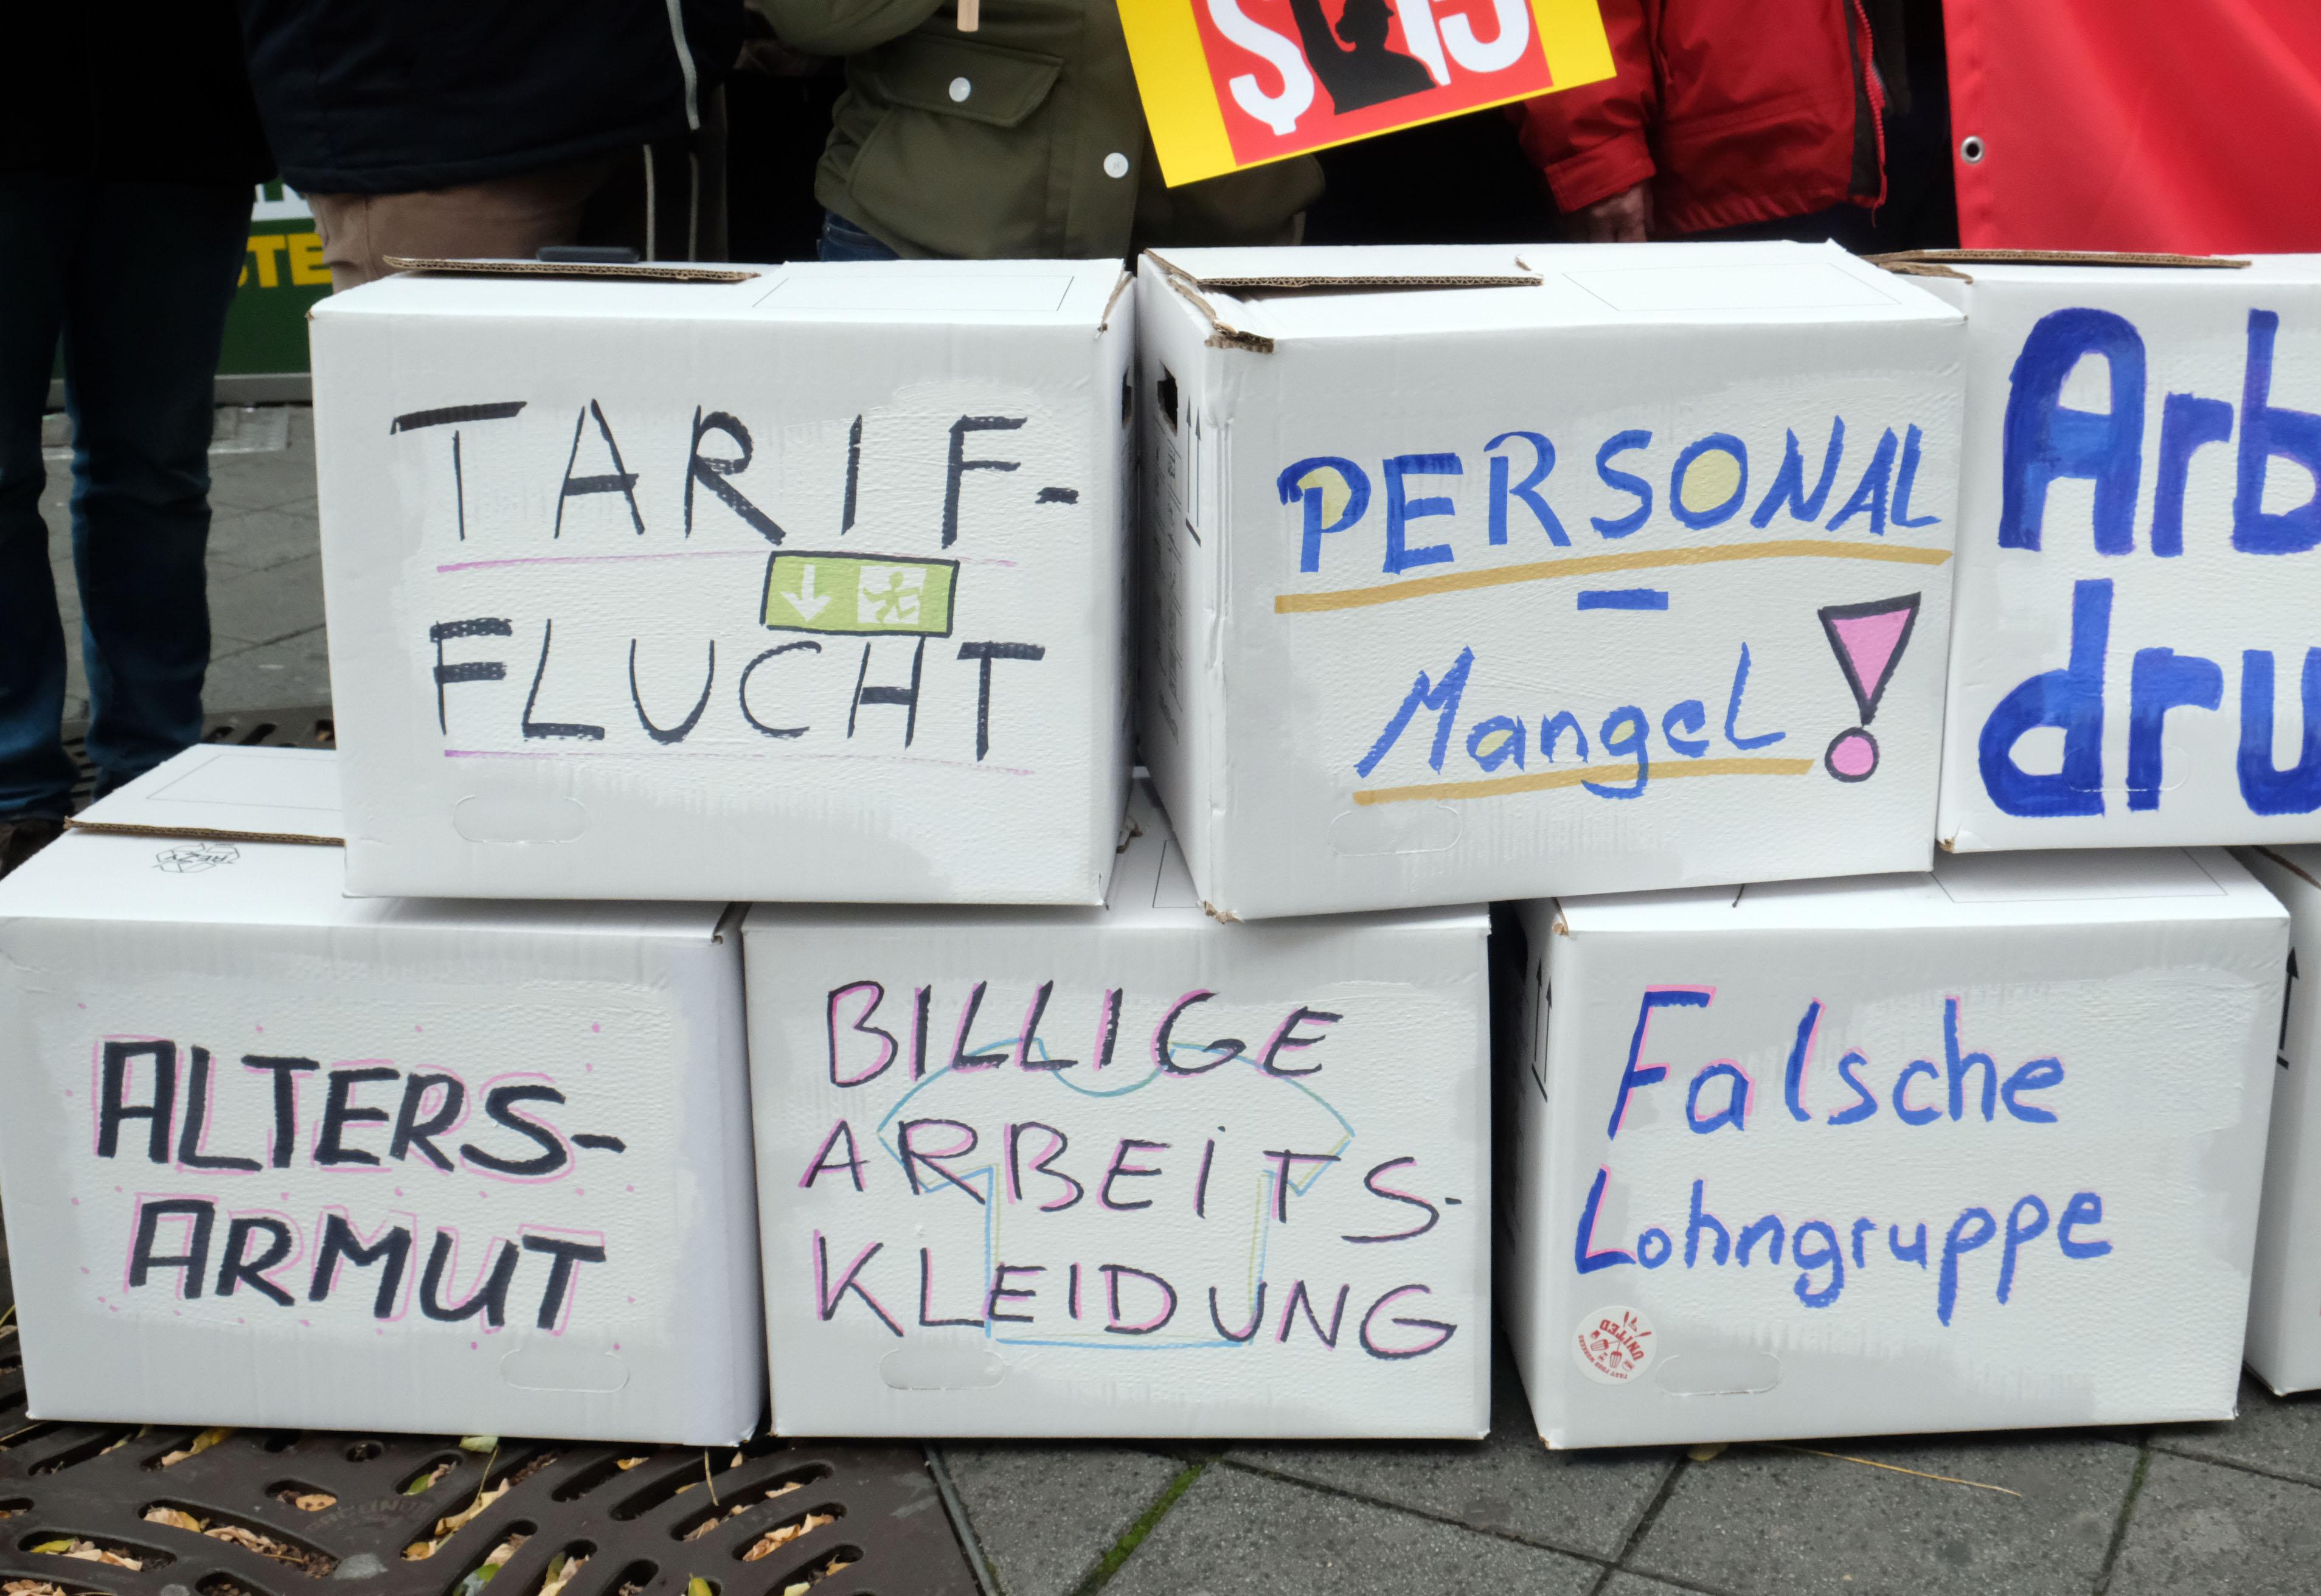 $15
STE
TARIF-
FLUCHT
PERSONAL
-
Mangel!
Arb
dru
ALTERS-
ARMUT
BILLIGE
ARBEITS-
KLEIDUNG
Falsche
Lohngruppe
UNITED
RESY